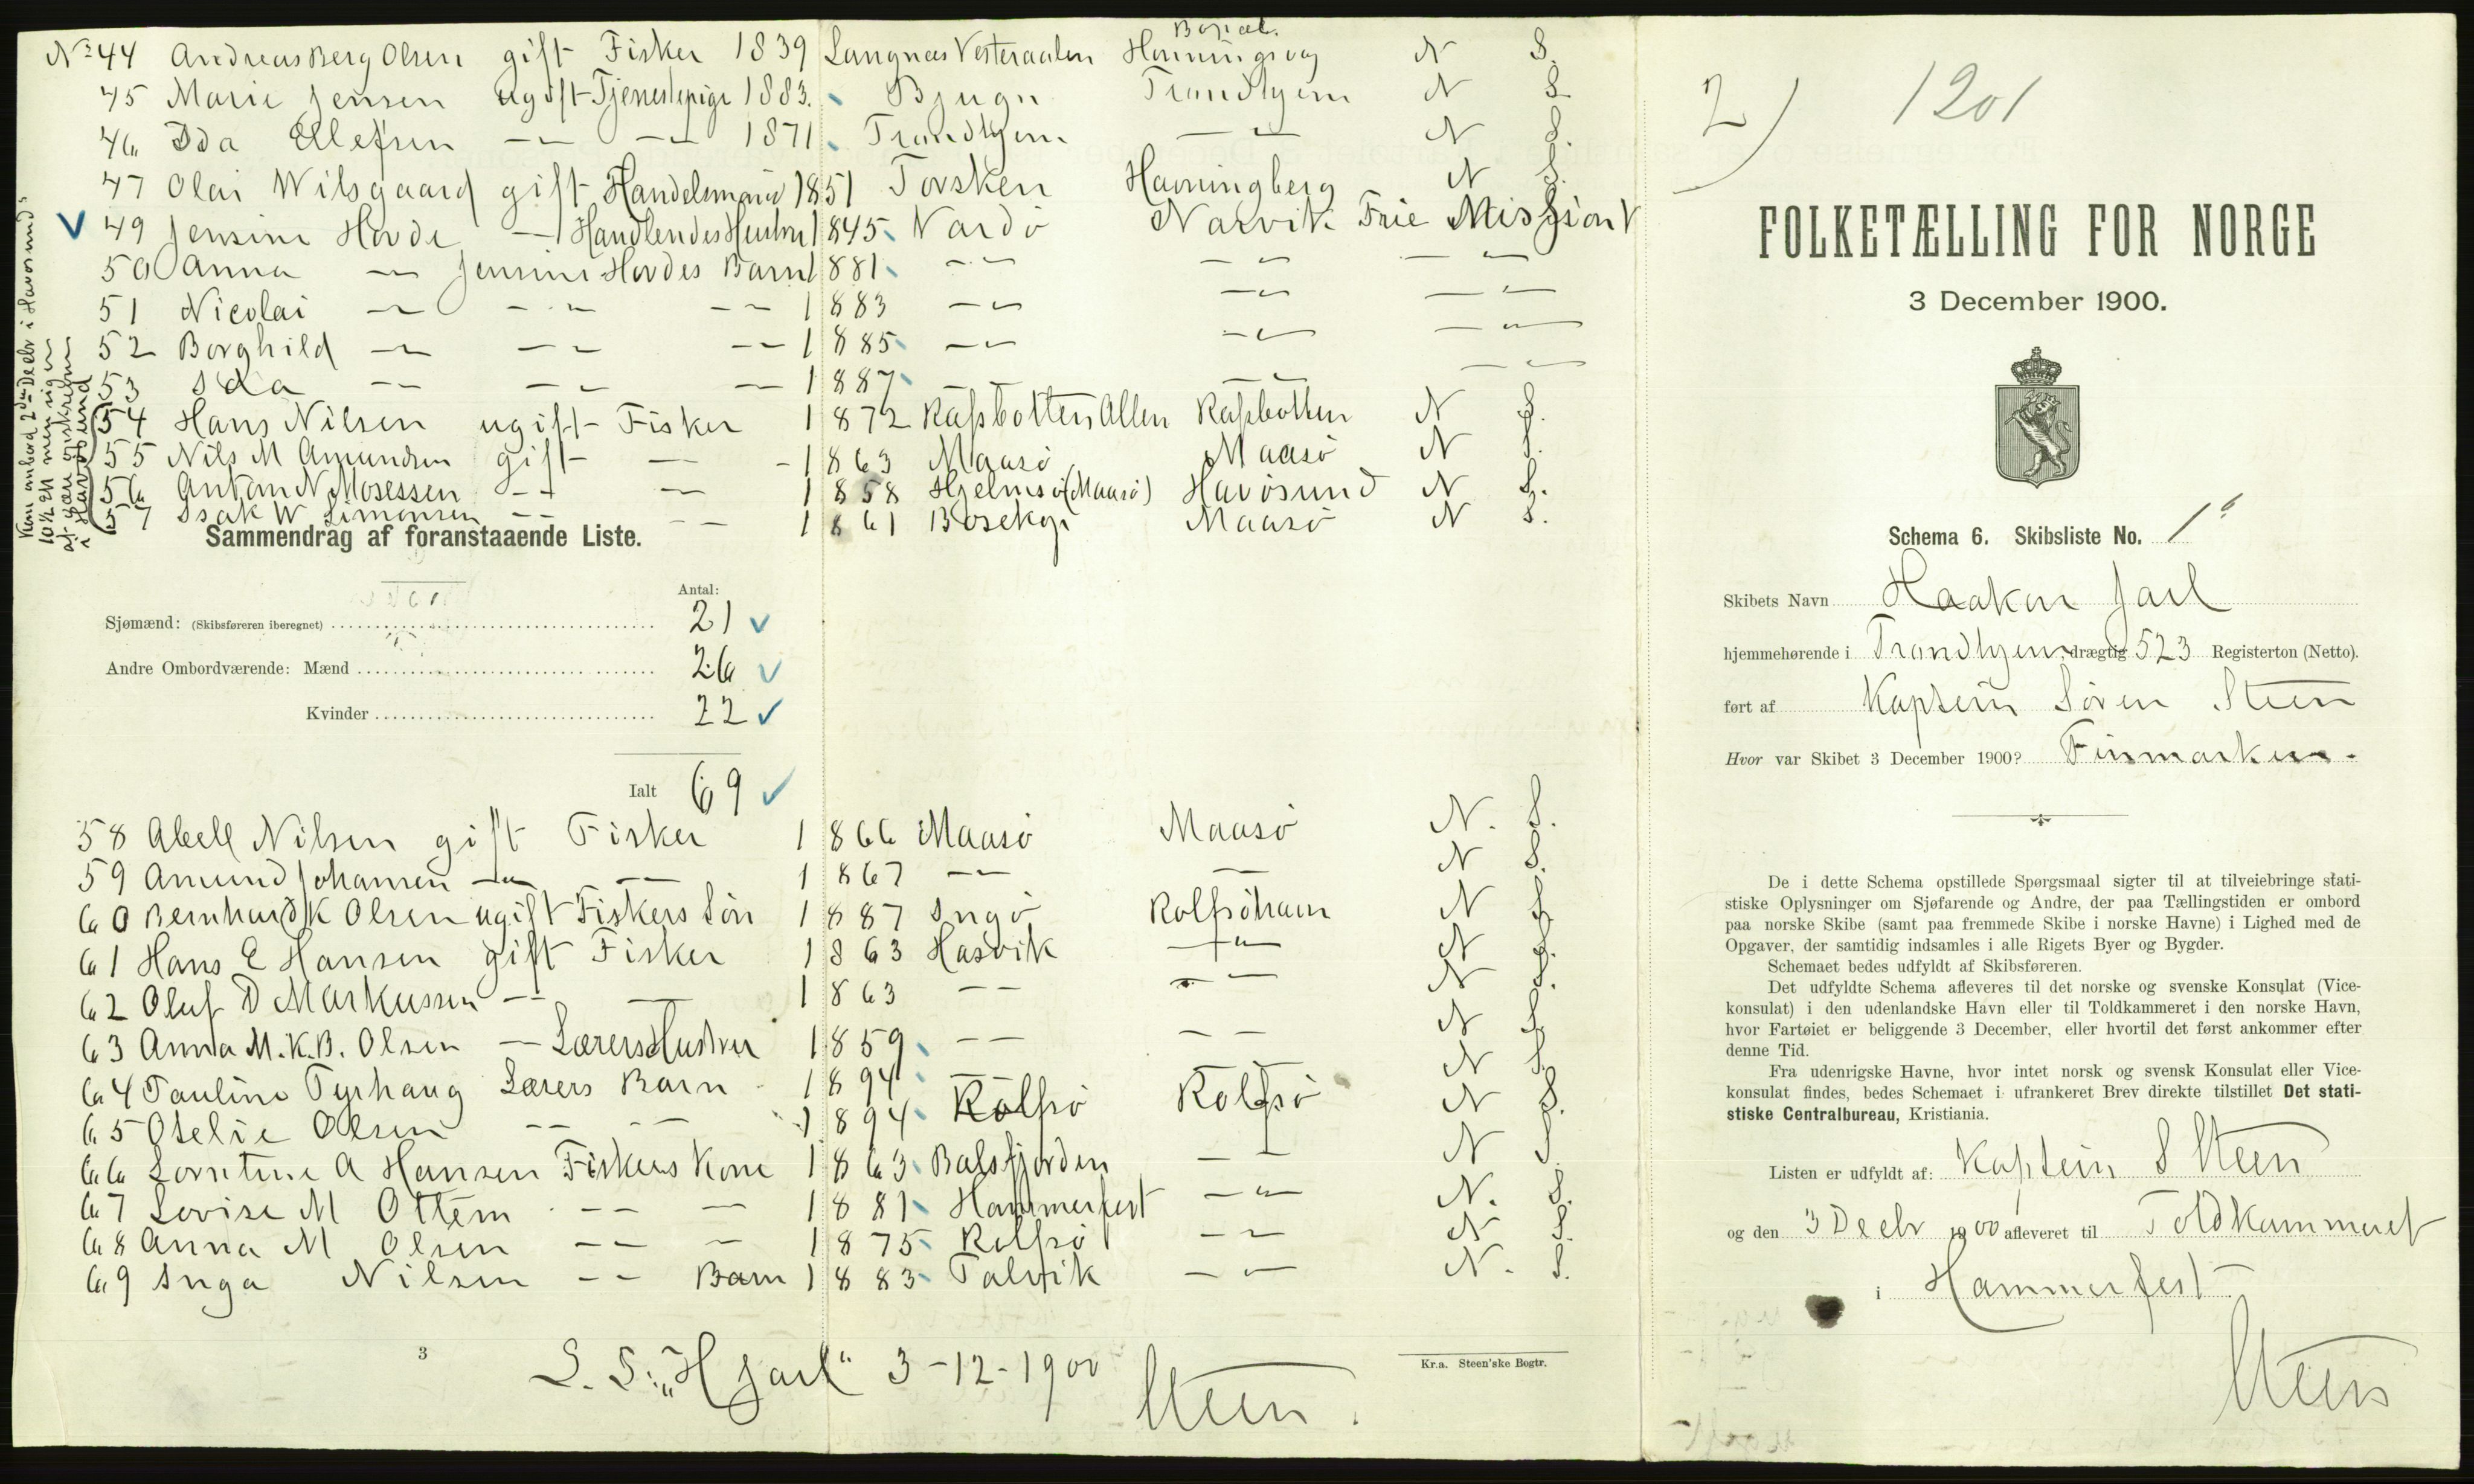 Bopæl.
No 44 Andreas Berg Olsen gift Fisker 1839 Langnæs Vesteraalen Honningsvog N S.
45 Marie Jensen ugift Tjenestepige 1883. Bjugn Trondhjem N S
46 Ida Ellefsen -"- -"- 1871 Trondhjem -"- N S.
47 Olai Wilsgaard gift Handelsmand 1851 Torsken Havningberg N S.
49 Jensine Hovde - Handlendes Hustru 1845 Vardö Narvik Frie Missjon
50 Anna -"- Jensine Hovdes Barn 1881 -"- -"- -"-
51 Nicolai -"- -"- -"- 1883 -"- -"- -"-
52 Borghild -"- -"- -"- 1885 -"- -"- -"-
53 Ida -"- -"- -"- 1887 -"- -"- -"-
54 Hans Nilsen ugift Fisker 1872 Rafsbotten Alten Rafsbotten N S.
55 Nils M Amundsen gift - 1863 Maasö Maasö N S.
56 Anton N Mosessen -"- - 1858 Hjelmsö (Maasö) Havösund N S.
57 Isak W Simonsen -"- -"- 1861 Bosekop Maasö N S.
Kom ombord 2den Decbr i Havösund
10½ em men sigen
at være
i Havösund
Sammendrag af foranstaaende Liste.
Antal:
Sjømænd: (Skibsføreren iberegnet) 21
Andre Ombordværende: Mænd 26
Kvinder 22
Ialt 69
58 Abell Nilsen gift Fisker 1866 Maasö Maasö N. S.
59 Amund Johansen -"- -"- 1867 -"- - N S.
60 Bernhard K Olsen ugift Fiskers Sön 1887 Ingö Rolfsöhavn N S
61 Hans E Hansen gift Fisker 1863 Hasvik -"- N S.
62 Oluf D Markussen -"- - 1863 -"- -"- N S.
63 Anna M.K.B. Olsen - Lærers Hustru 1859 -"- -"- N S
64 Pauline Tyrhaug Lærers Barn 1894 -"- - N S.
65 Otelie Olsen -"- -"- 1894 Rolfsö Rolfsö N S.
66 Lorntine A Hansen Fiskers Kone 1863 Balsfjorden -"- N S
67 Lovise M Ottem -"- - 1881 Hammerfest -"- N. S.
68 Anna M Olsen -"- - 1875 Rolfsö -"- N S.
69 Inga Nilsen -"- Barn 1883 Talvik -"- N. S.
3
S. S. „H Jarl" 3-12-1900 Steen.
Kr.a. Steen'ske Bogtr.
2) 1201
FOLKETÆLLING FOR NORGE
3 December 1900.
Schema 6. Skibsliste No. 1 b
Skibets Navn Haakon Jarl
hjemmehørende i Trondhjem, drægtig 523 Registerton (Netto).
ført af Kaptein Sören Steen
Hvor var Skibet 3 December 1900? Finmarken.
De i dette Schema opstillede Spørgsmaal sigter til at tilveiebringe stati-
stiske Oplysninger om Sjøfarende og Andre, der paa Tællingstiden er ombord
paa norske Skibe (samt paa fremmede Skibe i norske Havne) i Lighed med de
Opgaver, der samtidig indsamles i alle Rigets Byer og Bygder.
Schemaet bedes udfyldt af Skibsføreren.
Det udfyldte Schema afleveres til det norske og svenske Konsulat (Vice-
konsulat) i den udenlandske Havn eller til Toldkammeret i den norske Havn,
hvor Fartøiet er beliggende 3 December, eller hvortil det først ankommer efter
denne Tid.
Fra udenrigske Havne, hvor intet norsk og svensk Konsulat eller Vice-
konsulat findes, bedes Schemaet i ufrankeret Brev direkte tilstillet Det stati-
stiske Centralbureau, Kristiania.
Listen er udfyldt af: Kaptein S Steen
og den 3 Decbr 1900 afleveret til Toldkammeret
i Hammerfest
Steen